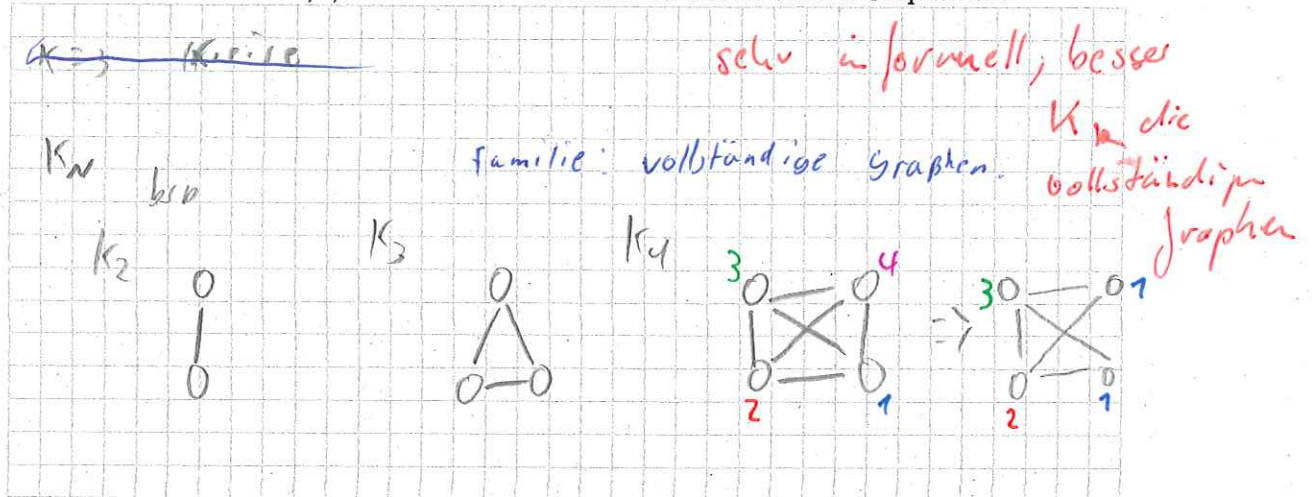 sehr informell, besser
K_n die
vollständigen
graphen
K_N
familie: vollständige Graphen.
bsp
K_2
K_3
K_4
3 4
2 1
=>
3 1
2 1